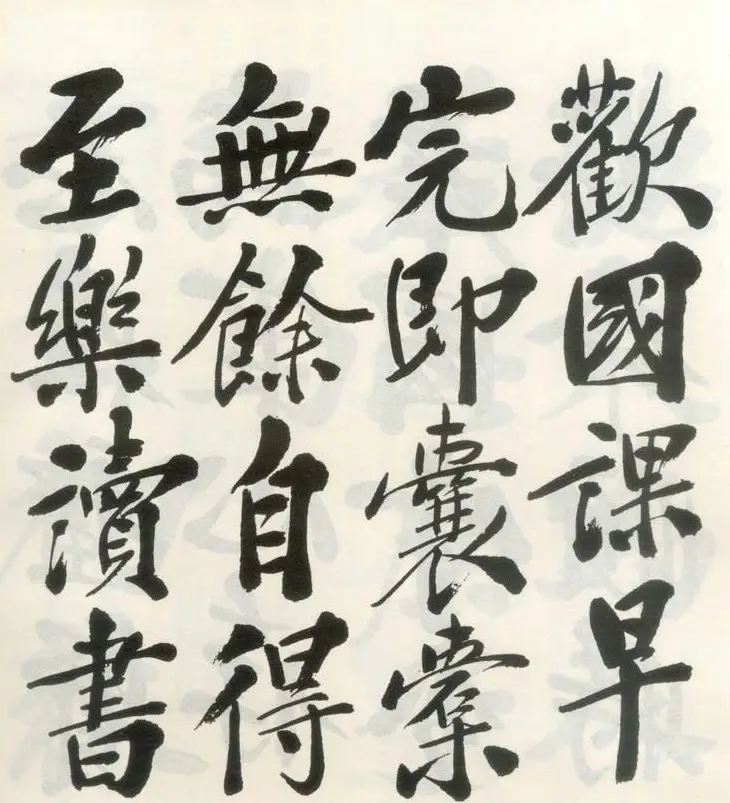 歡國課早
完即囊橐
無餘自得
至樂讀書